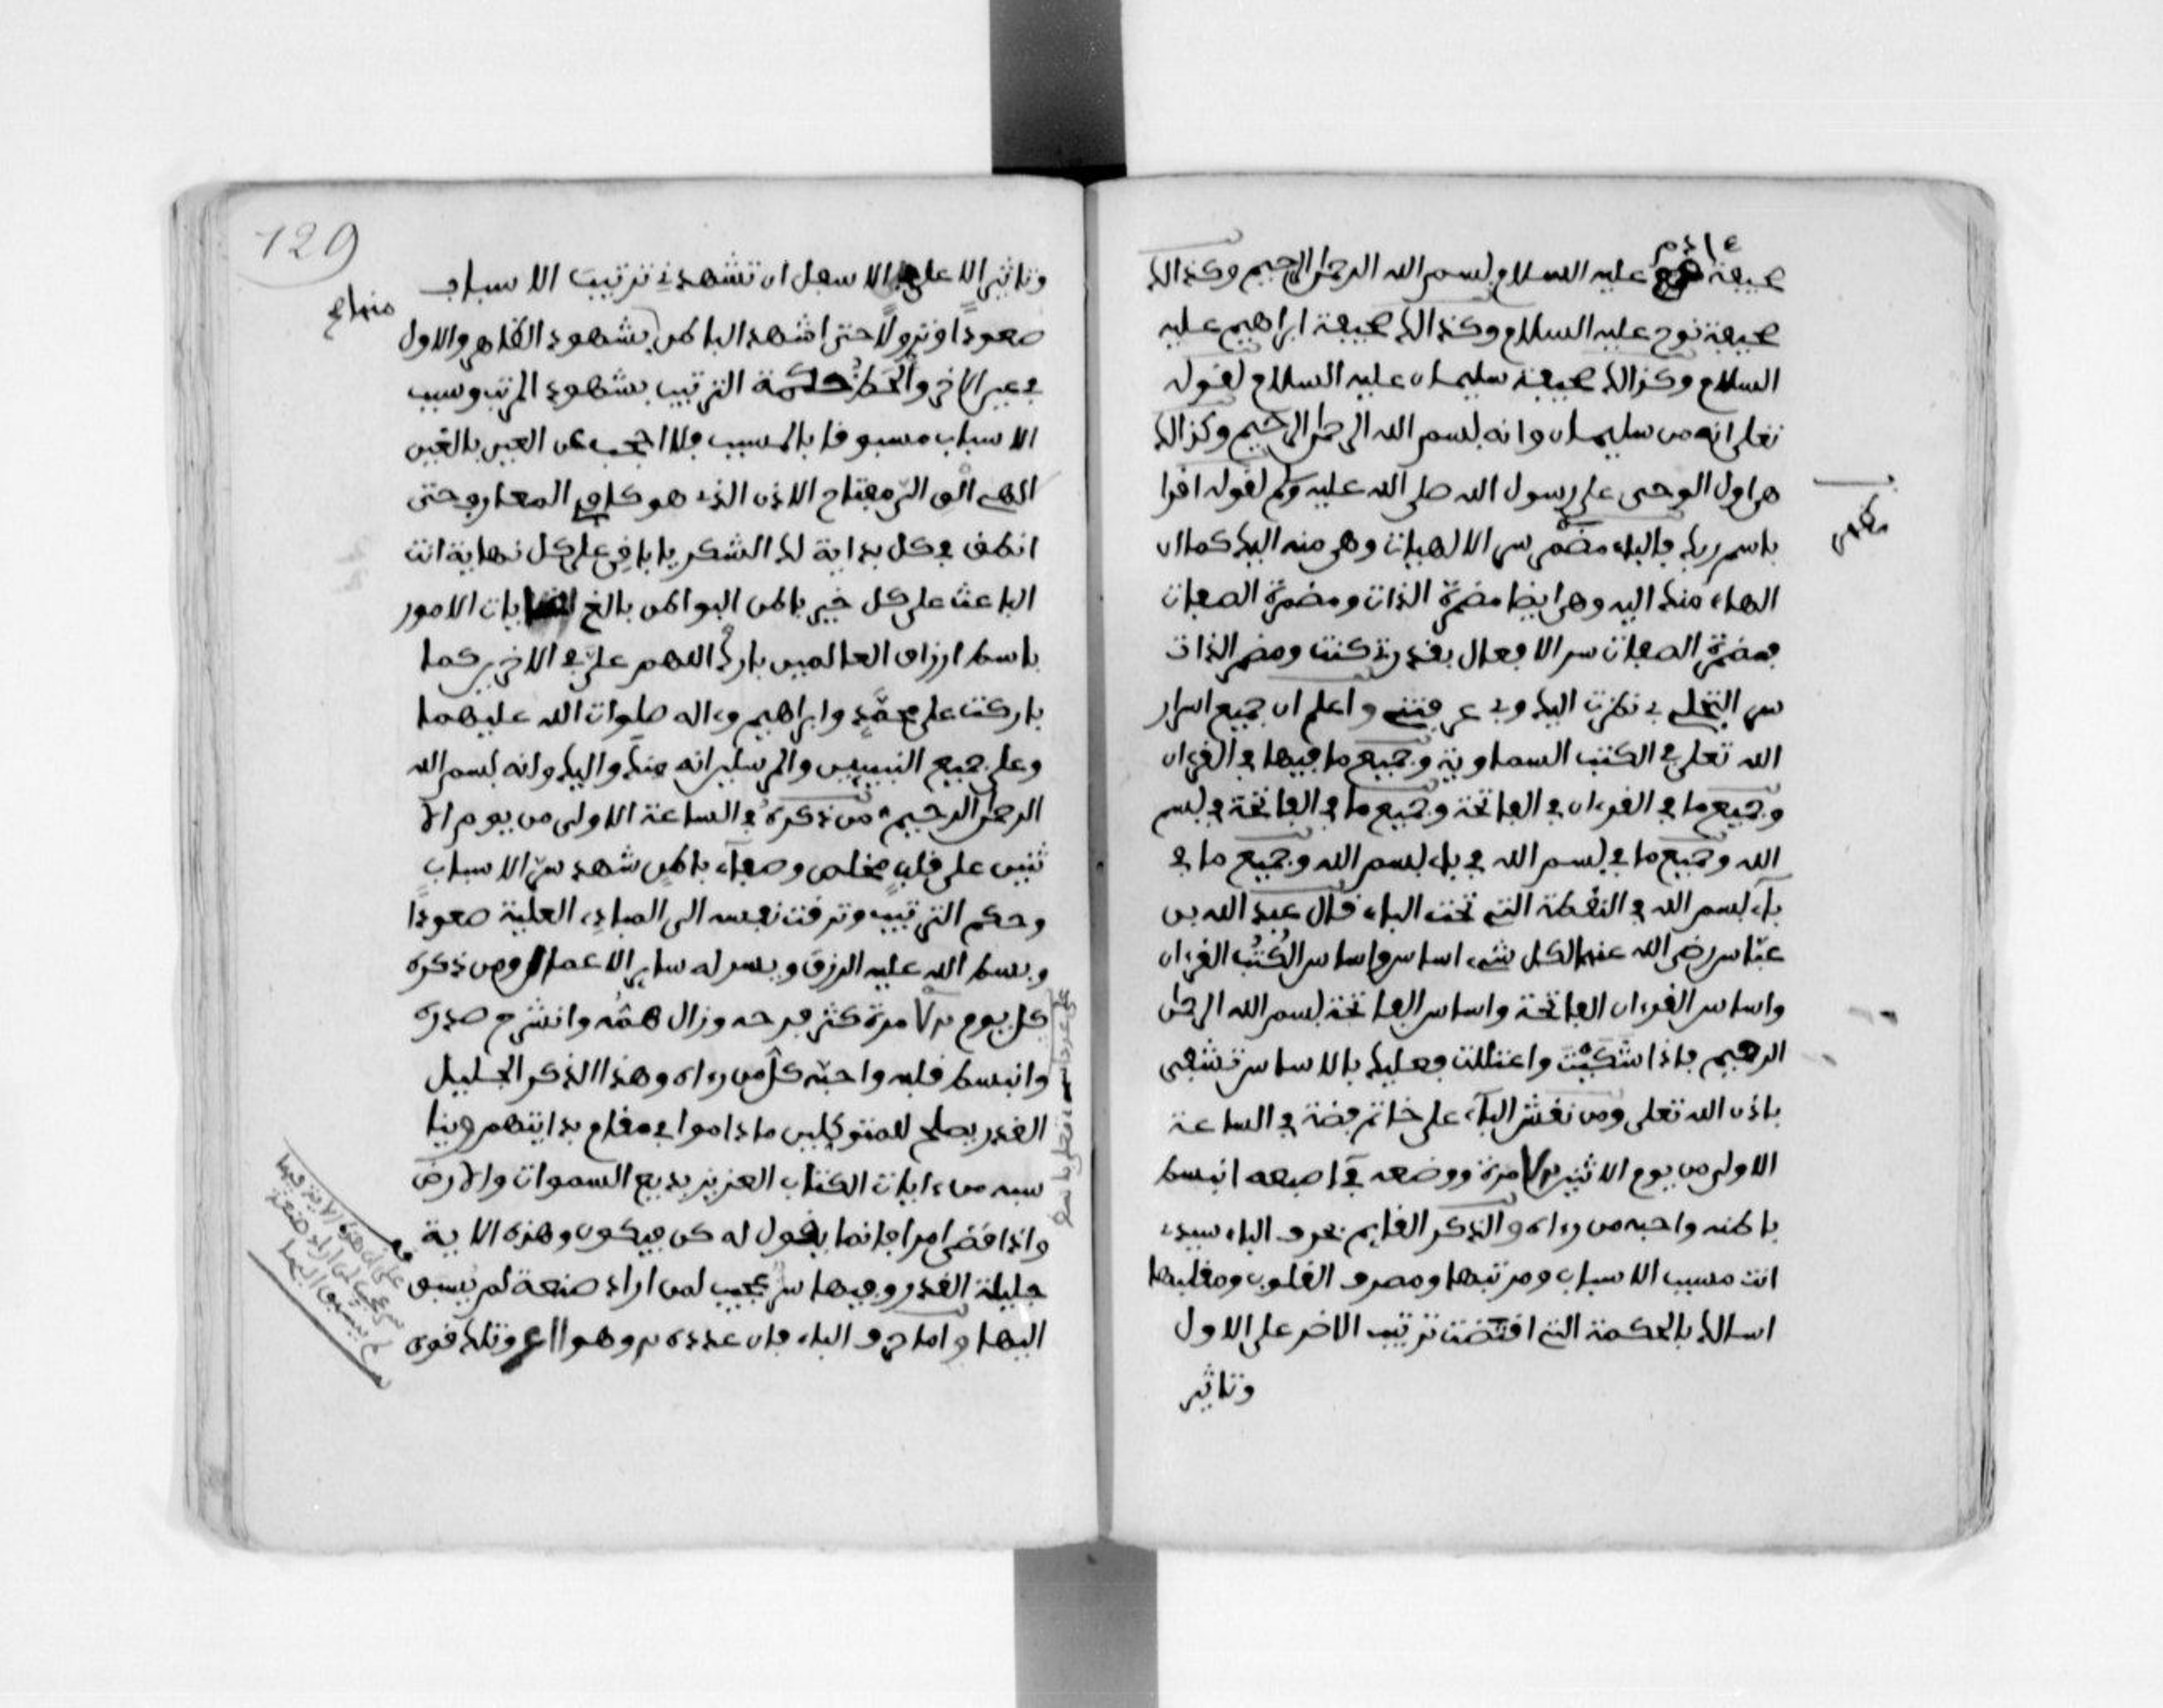 صحيفة ءادم عليه السلام بسم الله الرحمن الرحيم وكذالك
صحيفة نوح عليه السلام وكذالك صحيفة ابراهيم عليه
السلام وكذالك صحيفة سليمان عليه السلام لقوله
تعلى انه من سليمان وانه بسم الله الرحمن الرحيم وكذالك
هى اول الوحى على رسول الله صلى الله عليه وسلم لقوله اقرا
باسم ربك فالباء مضمر سر الالهيات وهى منه اليك كما ان
الهاء منك اليه وهى ايضا مضمرة الذات ومضمرة الصفات
فمضمرة الصفات سر الافعال بقدرتى كنت ومضمر الذات
سر التجلى بى نظرت اليك وبى عرفتنى واعلم ان جميع اسرار
الله تعلى فى الكتب السماوية وجميع ما فيها فى القرءان
وجميع ما فى القرءان فى الفاتحة وجميع ما فى الفاتحة فى بسم
الله وجميع ما فى بسم الله فى باء بسم الله وجميع ما فى
باء بسم الله فى النقطة التى تحت الباء قال عبد الله بن
عباس رضى الله عنهما لكل شىء اساس واساس الكتب القرءان
واساس القرءان الفاتحة واساس الفاتحة بسم الله الرحمن
الرحيم فاذا اشتكيت واعتللت فعليك بالاساس تشفى
باذن الله تعلى ومن نقش الباء على خاتم فضة فى الساعة
الاولى من يوم الاثنين مرة ووضعه فى اصبعه انبسط
باطنه واحبه من رءاه والذكر القايم بحرف الباء سيدى
انت مسبب الاسباب ومرتبها ومصرف القلوب ومقلبها
اسالك بالحكمة التى اقتضت ترتيب الاخر على الاول
وتاثير
129
وتاثير الاعلى فى الاسفل ان تشهدنى ترتيب الاسباب
صعودا ونزولا حتى اشهد الباطن بشهود الظاهر والاول
فى عين الاخر والحظ حكمة الترتيب بشهود المرتب وسبب
الاسباب مسبوقا بالمسبب فلا احجب عن العين بالغين
الهى الق الى مفتاح الاذن الذى هو كاف المعارف حتى
انطق فى كل بداية لك الشكر يا باقى على كل نهاية انت
الباعث على كل خير باطن البواطن بالغ غايات الامور
باسط ارزاق العالمين بارك اللهم على فى الاخرين كما
باركت على محمد وابراهيم وءاله صلوات الله عليهما
وعلى جميع النبيين والمرسلين انه منك واليك وانه بسم الله
الرحمن الرحيم من ذكره فى الساعة الاولى من يوم الا
ثنين على قلب مخلص وصفاء باطن شهد سر الاسباب
وحكم الترتيب وترقت نفسه الى المبادى العلية صعودا
وبسط الله عليه الرزق ويسر له ساير الاعمال ومن ذكره
كل يوم مرة كثر فرحه وزال همه وانشرح صدره
وانبسط قلبه واحبه كل من رءاه وهذا الذكر الجليل
القدر يصلح للمتوكلين ما داموا فى مقام بدايتهم وينا
سبه من ءايات الكتاب العزيز بديع السموات والارض
واذا قضى امرا فانما يقول له كن فيكون وهذه الاية
جليلة القدر وفيها سر عجيب لمن اراد صنعة لم يسبق
اليها واما حرف الباء فان عدده وهو وتلك قوى